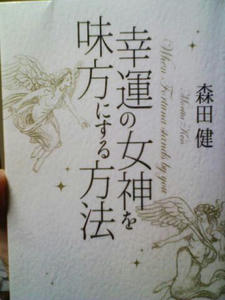 幸運の女神を
味方にする方法
When Fortuna stands by you
森田 健
Morita Ken